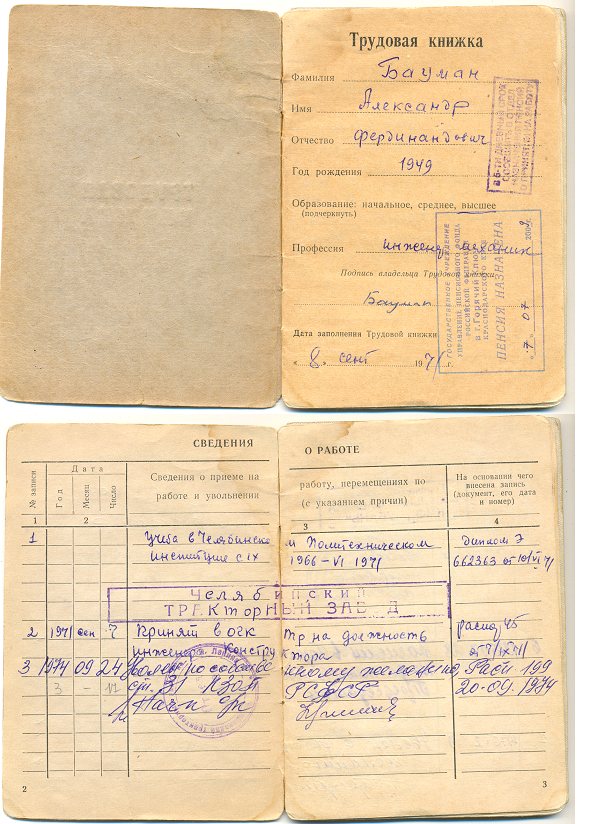 Трудовая книжка
Фамилия Бауман
Имя Александр
Отчество Фердинандович
Год рождения 1949
Образование: начальное, среднее, высшее
(подчеркнуть)
Профессия инженер механик
Подпись владельца Трудовой книжки
Бауман
Дата заполнения Трудовой книжки
« 8 » сент 1971 г.
В 5-ТИ ДНЕВНЫЙ СРОК
СООБЩИТЬ В ОТДЕЛ
О ПРИНЯТИИ НА РАБОТУ
ГОСУДАРСТВЕННОЕ УЧРЕЖДЕНИЕ
УПРАВЛЕНИЕ ПЕНСИОННОГО ФОНДА
РОССИЙСКОЙ ФЕДЕРАЦИИ
в г. Горячий Ключ
КРАСНОДАРСКОГО КРАЯ
ПЕНСИЯ НАЗНАЧЕНА
« 7 » 07 2002
СВЕДЕНИЯ О РАБОТЕ
№ записи
Дата
Год Месяц Число
Сведения о приеме на работу, перемещениях по
работе и увольнении (с указанием причин)
На основании чего
внесена запись
(документ, его дата
и номер)
1 2 3 4
1 Учеба в Челябинском Политехническом Диплом Э
институте с IX 1966 – VI 1971 662363 от 10/VI 71
Челябинский
ТРАКТОРНЫЙ ЗАВОД
2 1971 сен 7 Принят в ОГК Тр на должность распор 45
инженера Конструктора от 7/IX 71
3 1974 09 24 Уволен по собственному желанию, Расп 199
ст. 31 КЗОТ РСФСР 20.09.1974
2
3